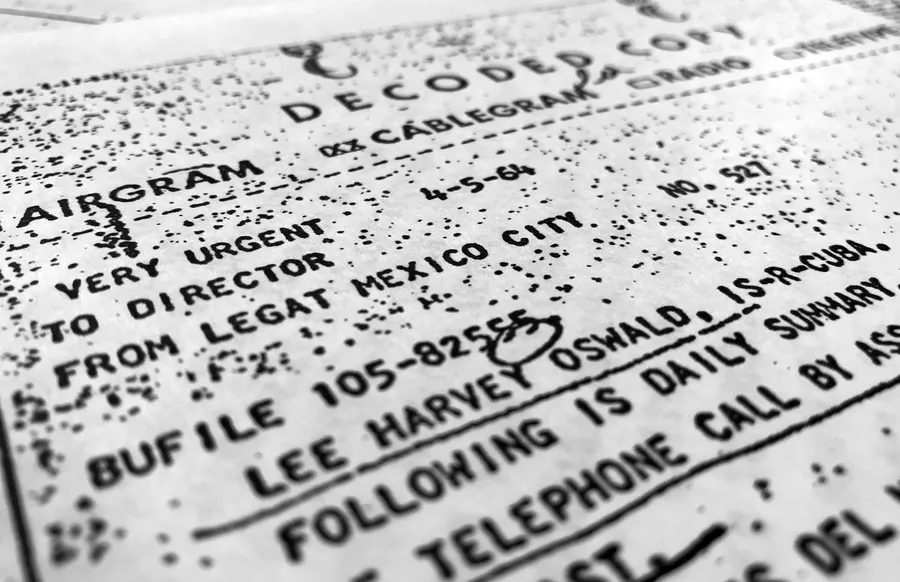 DECODED COPY
AIRGRAM CABLEGRAM RADIO
4-5-64 NO. 527
VERY URGENT
TO DIRECTOR
FROM LEGAT MEXICO CITY
BUFILE 105-82555
LEE HARVEY OSWALD, IS-R-CUBA.
FOLLOWING IS DAILY SUMMARY.
TELEPHONE CALL BY
DEL